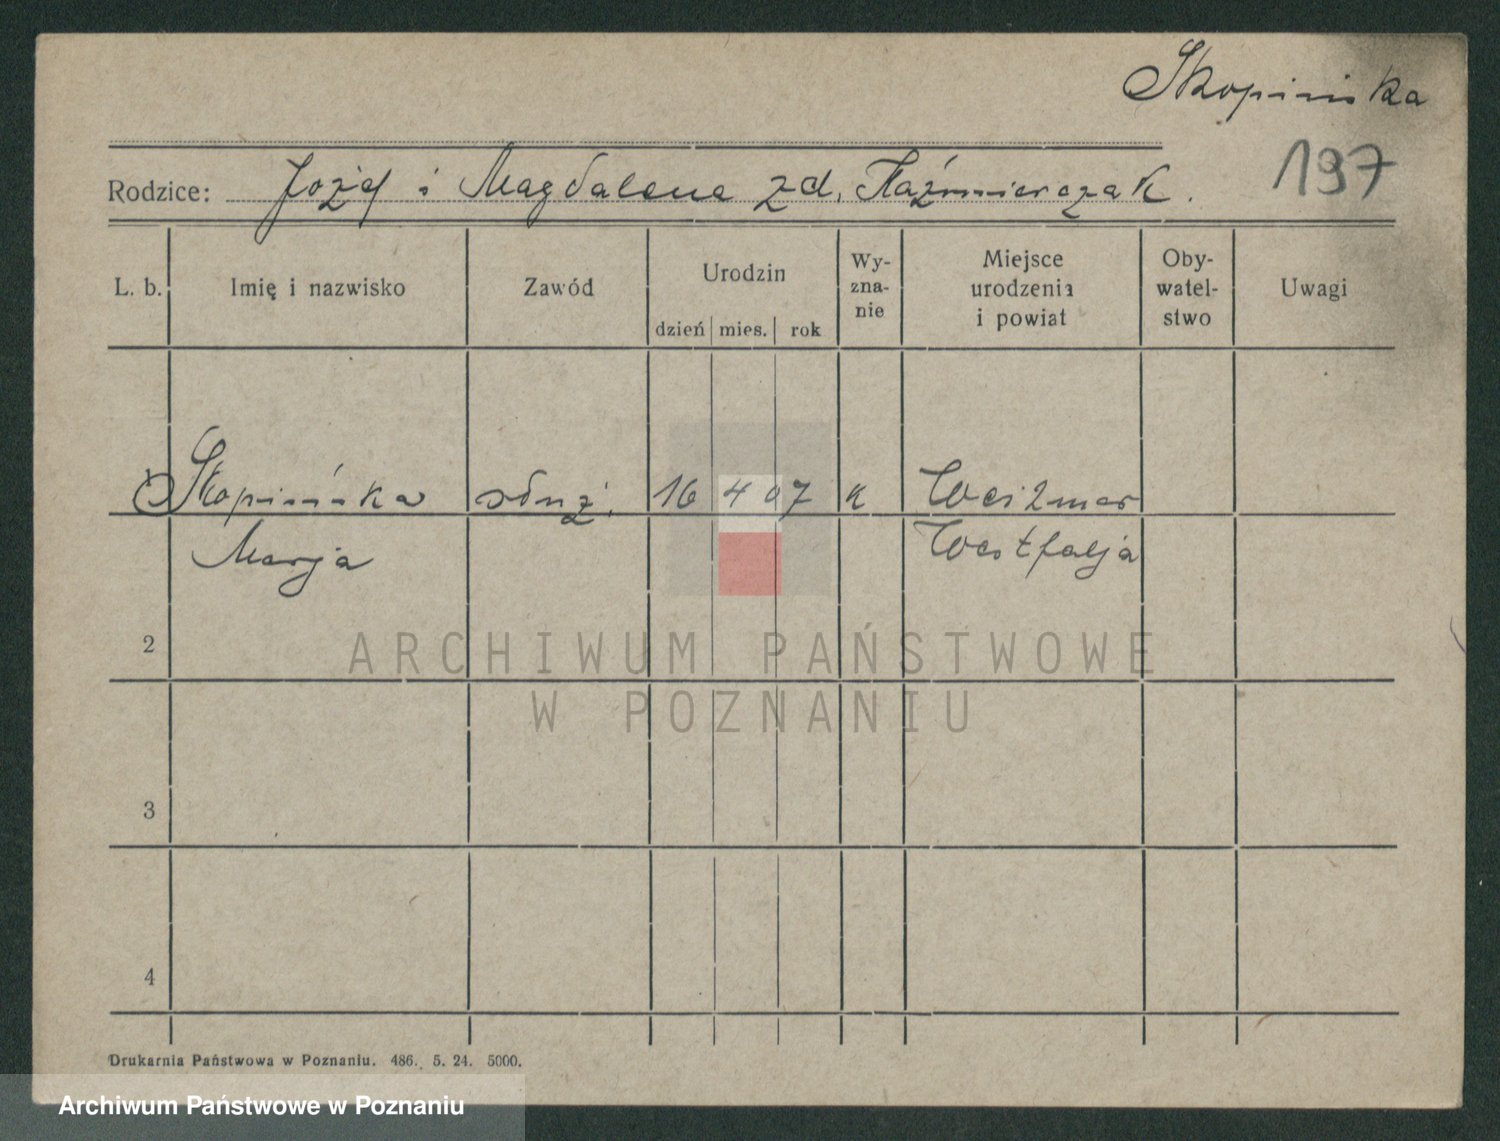 Skopińska
197
Rodzice: Józef i Magdalena zd. Kaźmierczak.
L. b. Imię i nazwisko Zawód Urodzin dzień mies. rok Wy-zna-nie Miejsce urodzenia i powiat Oby-watel-stwo Uwagi
1 Skopińska służ. 16 4 07 k Weitmar
Marja Westfalja
2
ARCHIWUM PAŃSTWOWE
W POZNANIU
3
4
Drukarnia Państwowa w Poznaniu. 486. 5. 24. 5000.
Archiwum Państwowe w Poznaniu